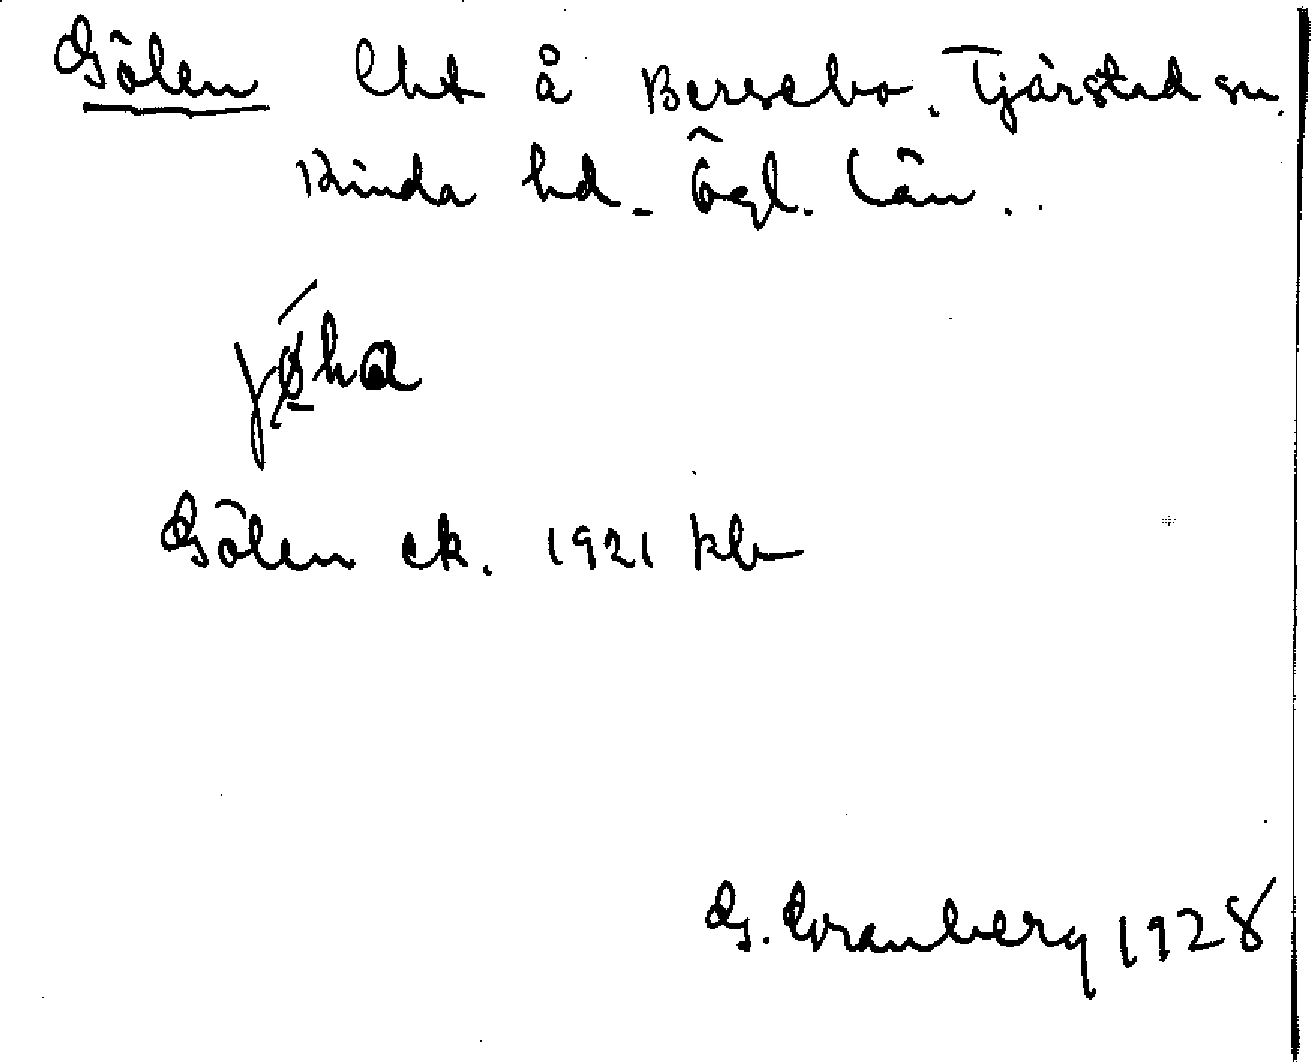 Gölen lht å Bersebo. Tjärstad sn.
Kinda hd. Ögl. län.
Gölen ek. 1921 kb
G. Granberg 1928